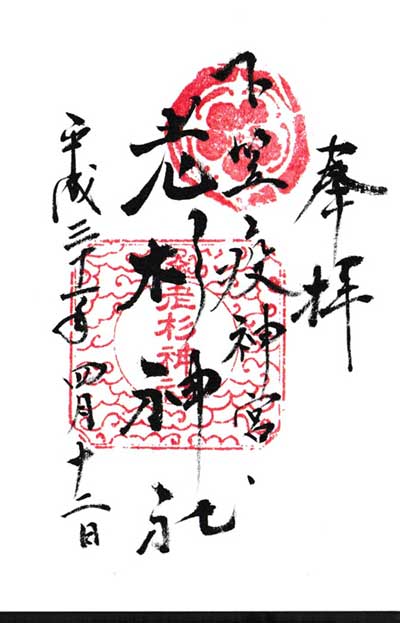 奉拝
下笠疫神宮
老杉神社
平成三十一年四月十二日
老杉神社